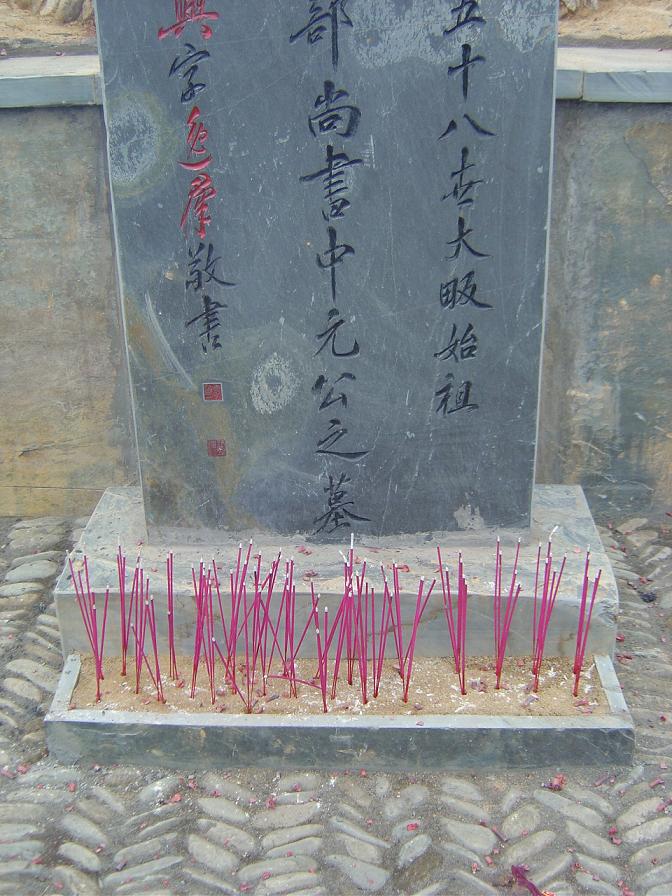 五十八世大畈始祖
部尚書中元公之墓
興字逸羣敬書